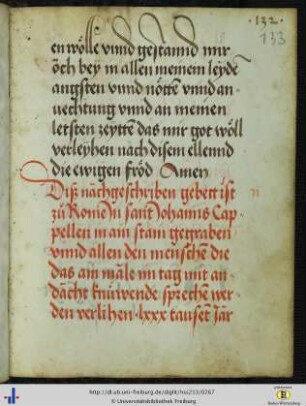 ·132·
133
en wölle vnnd gestannd mir
öch bey in allen meinem leyde
angsten vnnd nötten vnnd an
uechtung vnnd an meinen
letsten zeytten das mir got wöll
verleyhen nach disem ellennd
die ewigen fröd Amen
Diß nächgeschriben gebett ist
zů Rome in sant Johanns Cap
pellen in ain stain gegraben
vnnd allen den menschē die
das am māle im tag mit an
dächt knüwende sprechē wer
den verlihen ·lxxx tauset Jar
http://dl.ub.uni-freiburg.de/diglit/hs/0267
© Universitätsbibliothek Freiburg